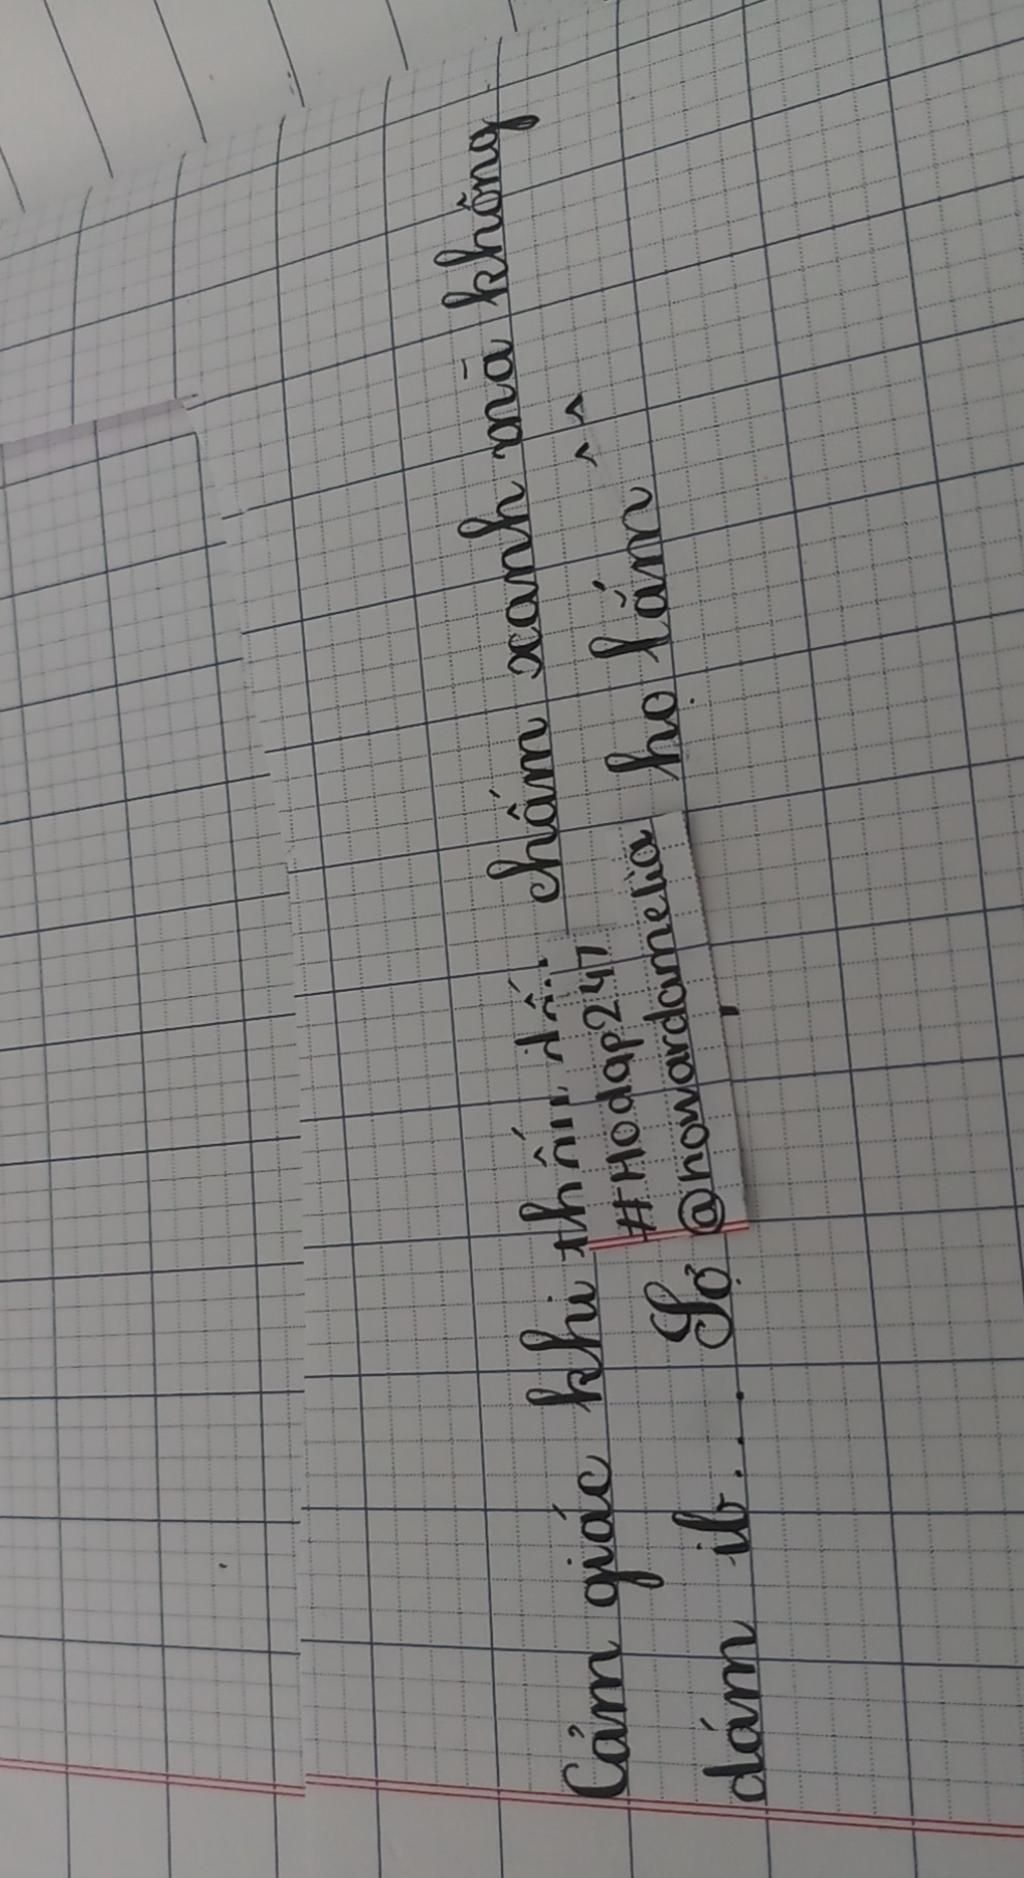 Cảm giác khi thấy dấu chấm xanh mà không
dám ib.... Sợ họ lắm ^^
#Hodqp247
@nowardamelia